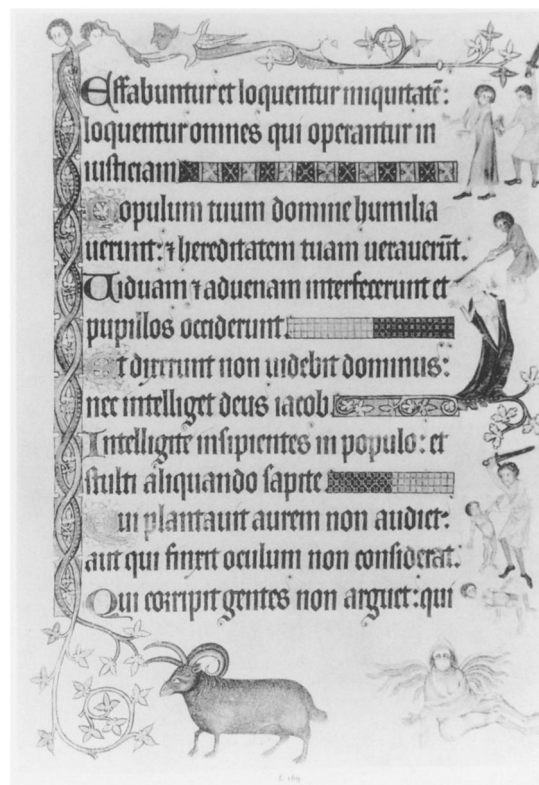 Effabuntur et loquentur iniquitatē:
loquentur omnes qui operantur in
iusticiam
Populum tuum domine humilia
uerunt: ⁊ hereditatem tuam uexauerūt.
Uiduam ⁊ aduenam interfecerunt et
pupillos occiderunt
Et dixerunt non uidebit dominus:
nec intelliget deus iacob
Intelligite insipientes in populo: et
stulti aliquando sapite
Qui plantauit aurem non audiet:
aut qui finxit oculum non considerat.
Qui corripit gentes non arguet: qui